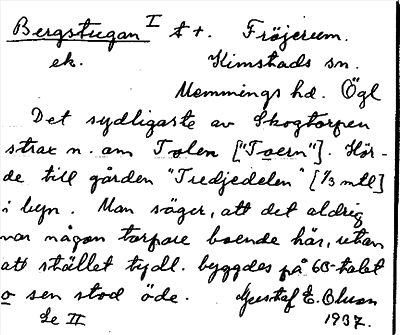 Bergstugan I t +. Fröjerum.
ek. Kimstads sn.
Memmings hd. Ögl
Det sydligaste av Skogtorpen
strax n. om Tolen ["Toern"]. Hör-
de till gården "Tredjedelen" [1/3 mtl]
i byn. Man säger, att det aldrig
var någon torpare boende här, utan
att stället tydl. byggdes på 60-talet
o sen stod öde. Gustaf E. Olson
Se II 1937.